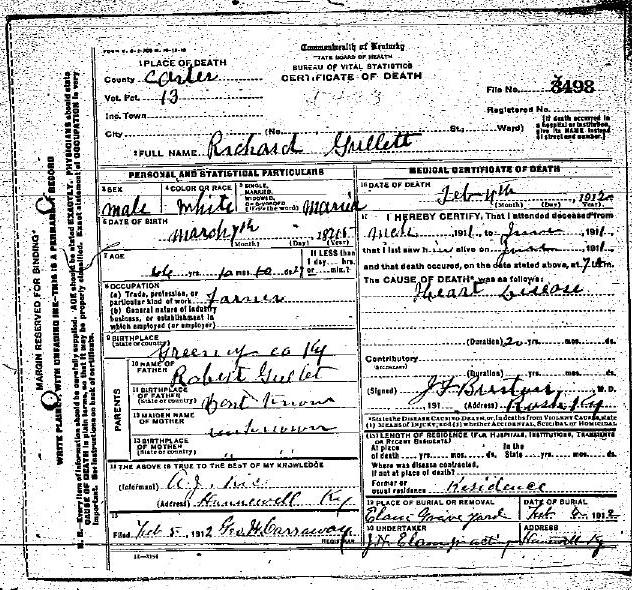 Commonwealth of Kentucky
STATE BOARD OF HEALTH
BUREAU OF VITAL STATISTICS
CERTIFICATE OF DEATH
1 PLACE OF DEATH
County Carter
Vot. Pct. 13
Inc. Town
City (No. St.; Ward)
File No. 3498
Registered No.
[If death occurred in a hospital or institution, give its NAME instead of street and number.]
2 FULL NAME Richard Gullett
PERSONAL AND STATISTICAL PARTICULARS
3 SEX male
4 COLOR OR RACE White
5 SINGLE, MARRIED, WIDOWED, OR DIVORCED (Write the word) Maried
6 DATE OF BIRTH
March 7th
(Month) (Day) (Year)
7 AGE
yrs. mos.
If LESS than 1 day, hrs. or min.?
8 OCCUPATION
(a) Trade, profession, or particular kind of work farmer
(b) General nature of industry business, or establishment in which employed (or employer)
9 BIRTHPLACE (State or country)
co Ky
PARENTS
10 NAME OF FATHER Robert Gullet
11 BIRTHPLACE OF FATHER (State or country) Dont Know
12 MAIDEN NAME OF MOTHER unknown
13 BIRTHPLACE OF MOTHER (State or country)
14 THE ABOVE IS TRUE TO THE BEST OF MY KNOWLEDGE
(Informant)
(Address) Hunnewell Ky
15
Filed Feb 5, 1912 Geo H. Carraway
REGISTRAR
MEDICAL CERTIFICATE OF DEATH
16 DATE OF DEATH
Feb 4th 1912
(Month) (Day) (Year)
17 I HEREBY CERTIFY, That I attended deceased from
1911, to June 1911,
that I last saw him alive on June 1911,
and that death occurred, on the date stated above, at 7 m.
The CAUSE OF DEATH* was as follows:
Heart Disease
(Duration) 20 yrs. mos. ds.
Contributory
(SECONDARY)
(Duration) yrs. mos. ds.
(Signed) M. D.
191 (Address) Ky
*State the DISEASE CAUSING DEATH, or, in deaths from VIOLENT CAUSES, state (1) MEANS OF INJURY; and (2) whether ACCIDENTAL, SUICIDAL or HOMICIDAL
18 LENGTH OF RESIDENCE (FOR HOSPITALS, INSTITUTIONS, TRANSIENTS OR RECENT RESIDENTS)
At place of death yrs. mos. ds. In the State yrs. mos. ds.
Where was disease contracted, if not at place of death?
Former or usual residence Residence
19 PLACE OF BURIAL OR REMOVAL Elam Grave yard
DATE OF BURIAL Feb 1912
20 UNDERTAKER J.H. Elam acting
ADDRESS Hunnewell Ky
MARGIN RESERVED FOR BINDING
WRITE PLAINLY, WITH UNFADING INK—THIS IS A PERMANENT RECORD
N. B.—Every item of information should be carefully supplied. AGE should be stated EXACTLY. PHYSICIANS should state
CAUSE OF DEATH in plain terms, so that it may be properly classified. Exact statement of OCCUPATION is very
important. See instructions on back of certificate.